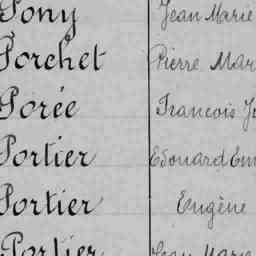 Pony Jean Marie
Porchet Pierre Mar
Porée Francois
Portier Edouard Em
Portier Eugène
Portier Jean Marie